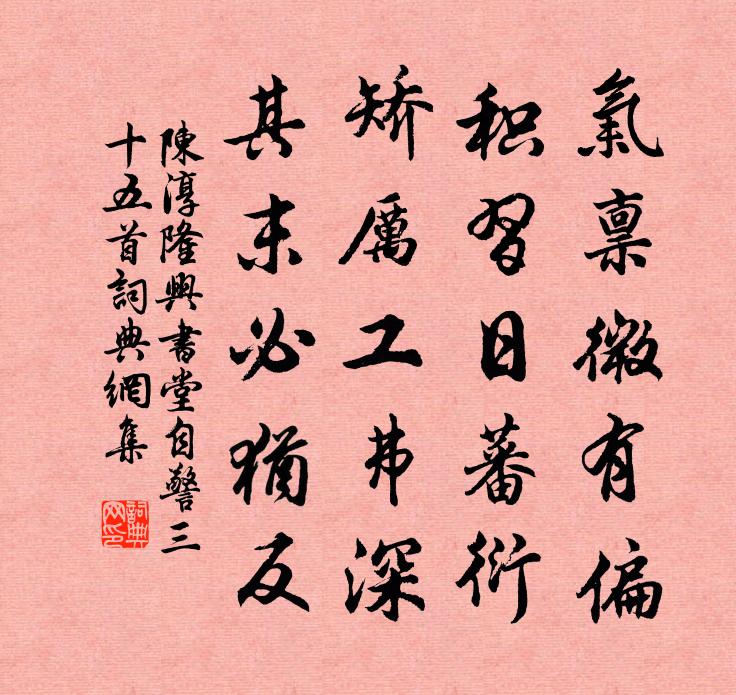 氣禀微有偏
积習日蕃衍
矫厲工弗深
其末必猶反
陳淳隆興書堂自警三
十五首詞典網集
詞典网印